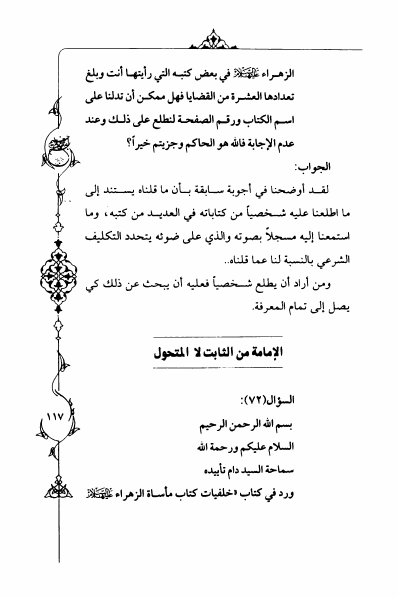 الزهراء عليها السلام في بعض كتبه التي رأيتها أنت وبلغ
تعدادها العشرة من القضايا فهل ممكن أن تدلنا على
اسم الكتاب ورقم الصفحة لنطلع على ذلك وعند
عدم الإجابة فالله هو الحاكم وجزيتم خيراً؟
الجواب:
لقد أوضحنا في أجوبة سابقة بأن ما قلناه يستند إلى
ما اطلعنا عليه شخصياً من كتاباته في العديد من كتبه، وما
استمعنا إليه مسجلاً بصوته والذي على ضوئه يتحدد التكليف
الشرعي بالنسبة لنا عما قلناه..
ومن أراد أن يطلع شخصياً فعليه أن يبحث عن ذلك كي
يصل إلى تمام المعرفة.
الإمامة من الثابت لا المتحول
١١٧
السؤال(٧٢):
بسم الله الرحمن الرحيم
السلام عليكم ورحمة الله
سماحة السيد دام تأييده
ورد في كتاب «خلفيات كتاب مأساة الزهراء عليها السلام